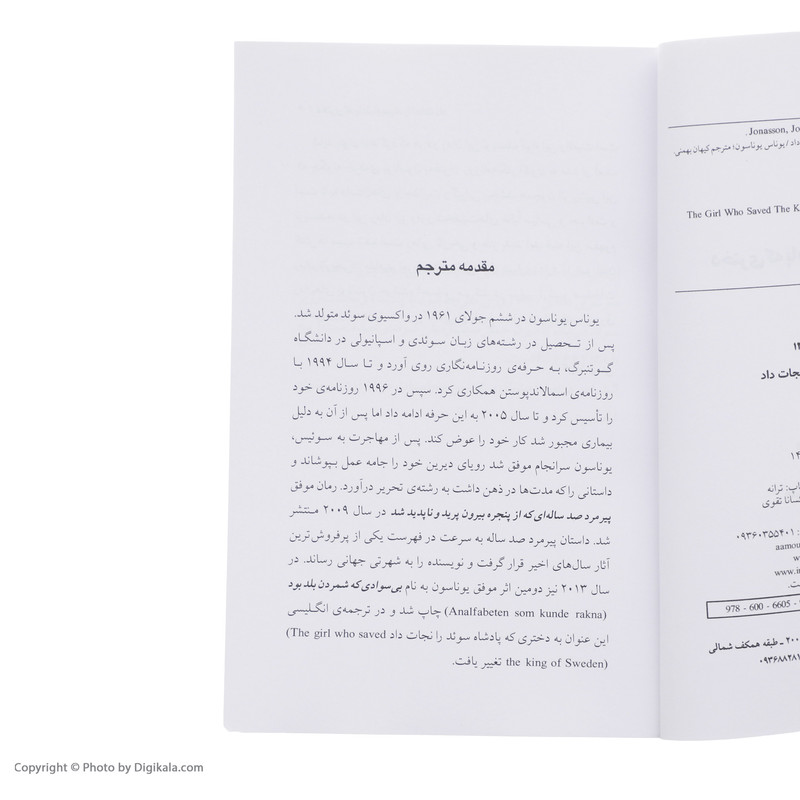 Jonasson, Jo
داد / یوناس یوناسون؛ مترجم کیهان بهمنی.
The Girl Who Saved The K
نجات داد
چاپ: ترانه
تقوی
۰۹۳۶۰۳۵۵۴۰۱
aamou
www.i
978 - 600 - 6605 -
۲۰۰ ـ طبقه همکف شمالی
۰۹۳۶۸۸۲۸۱
مقدمه مترجم
یوناس یوناسون در ششم جولای ۱۹۶۱ در واکسیوی سوئد متولد شد.
پس از تحصیل در رشته‌های زبان سوئدی و اسپانیولی در دانشگاه
گوتنبرگ، به حرفه‌ی روزنامه‌نگاری روی آورد و تا سال ۱۹۹۴ با
روزنامه‌ی اسمالاندپوستن همکاری کرد. سپس در ۱۹۹۶ روزنامه‌ی خود
را تأسیس کرد و تا سال ۲۰۰۵ به این حرفه ادامه داد اما پس از آن به دلیل
بیماری مجبور شد کار خود را عوض کند. پس از مهاجرت به سوئیس،
یوناسون سرانجام موفق شد رویای دیرین خود را جامه عمل بپوشاند و
داستانی را که مدت‌ها در ذهن داشت به رشته‌ی تحریر درآورد. رمان موفق
پیرمرد صد ساله‌ای که از پنجره بیرون پرید و ناپدید شد در سال ۲۰۰۹ منتشر
شد. داستان پیرمرد صد ساله به سرعت در فهرست یکی از پرفروش‌ترین
آثار سال‌های اخیر قرار گرفت و نویسنده را به شهرتی جهانی رساند. در
سال ۲۰۱۳ نیز دومین اثر موفق یوناسون به نام بی‌سوادی که شمردن بلد بود
(Analfabeten som kunde rakna) چاپ شد و در ترجمه‌ی انگلیسی
این عنوان به دختری که پادشاه سوئد را نجات داد (The girl who saved
the king of Sweden) تغییر یافت.
Copyright © Photo by Digikala.com